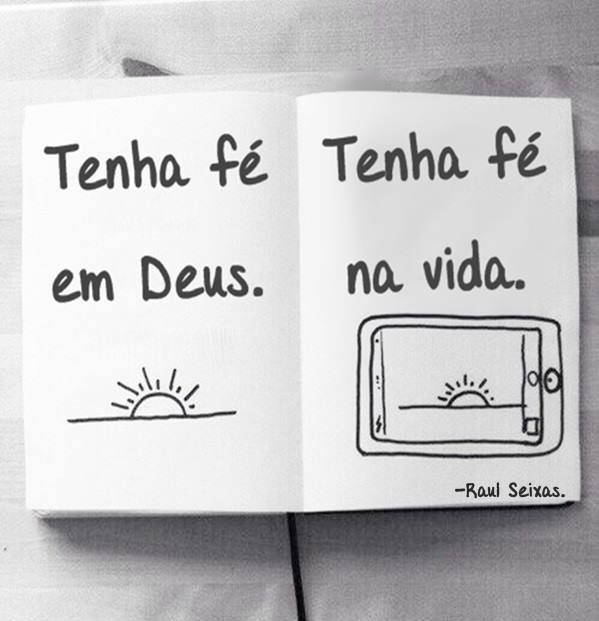 Tenha fé
em Deus.
Tenha fé
na vida.
-Raul Seixas.